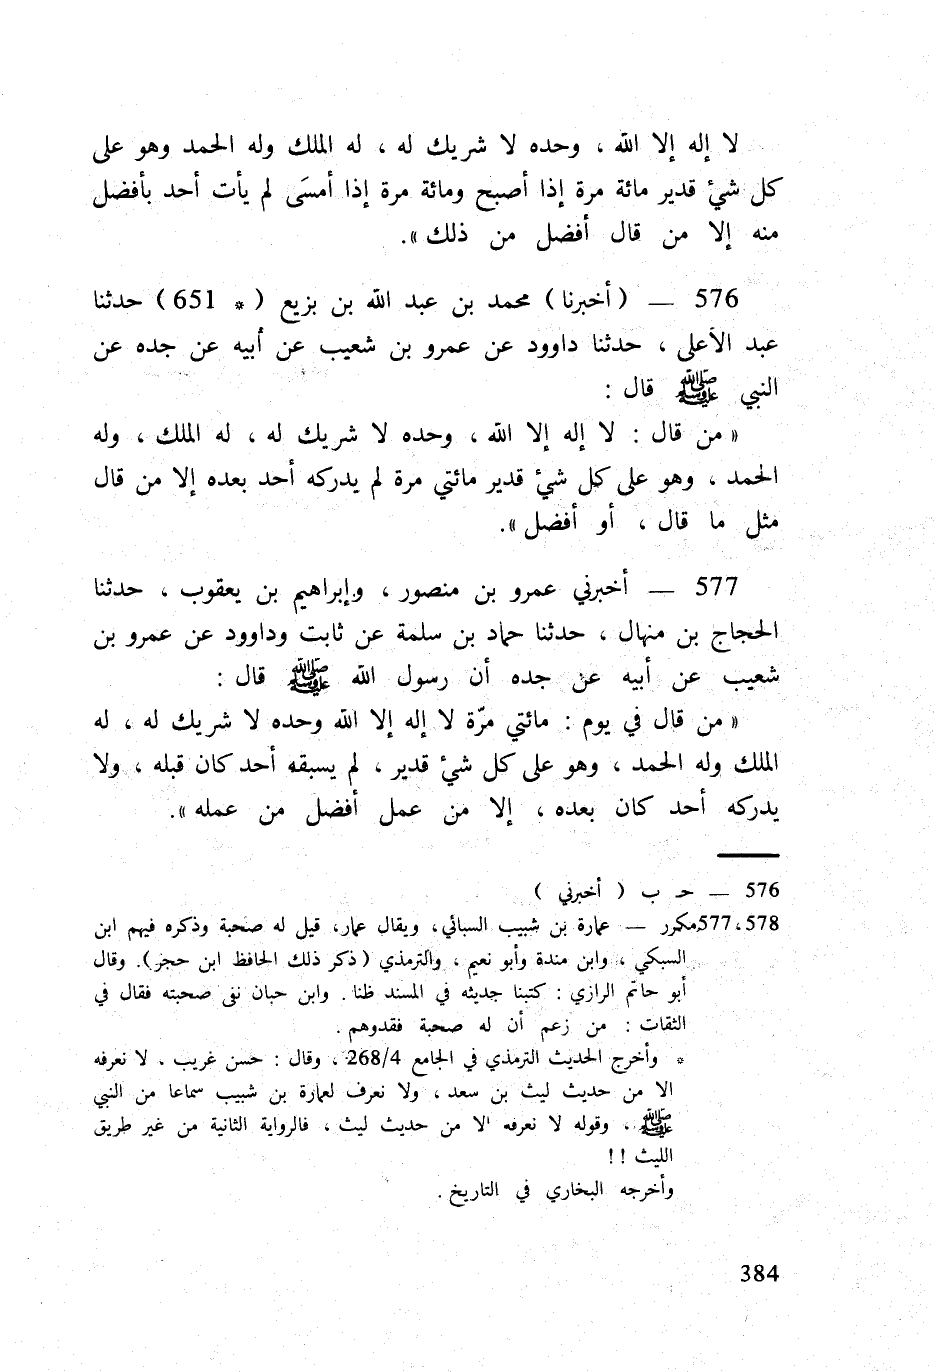 لا إله إلا الله ، وحده لا شريك له ، له الملك وله الحمد وهو على
كل شيءٍ قدير مائة مرة إذا أصبح ومائة مرة إذا أمسَى لم يأت أحد بأفضل
منه إلا من قال أفضل من ذلك » .
576 — ( أخبرنا ) محمد بن عبد الله بن بزيع ( * 651 ) حدثنا
عبد الأعلى ، حدثنا داوود عن عمرو بن شعيب عن أبيه عن جده عن
النبي ﷺ قال :
« من قال : لا إله إلا الله ، وحده لا شريك له ، له الملك ، وله
الحمد ، وهو على كل شيءٍ قدير مائتي مرة لم يدركه أحد بعده إلا من قال
مثل ما قال ، أو أفضل » .
577 — أخبرني عمرو بن منصور ، وإبراهيم بن يعقوب ، حدثنا
الحجاج بن منهال ، حدثنا حماد بن سلمة عن ثابت وداوود عن عمرو بن
شعيب عن أبيه عن جده أن رسول الله ﷺ قال :
« من قال في يوم : مائتي مرّة لا إله إلا الله وحده لا شريك له ، له
الملك وله الحمد ، وهو على كل شيءٍ قدير ، لم يسبقه أحد كان قبله ، ولا
يدركه أحد كان بعده ، إلا من عمل أفضل من عمله » .
576 — حـ ب ( أخبرني )
577،578مكرر — عمارة بن شبيب السبائي، ويقال عمار، قيل له صحبة وذكره فيهم ابن
السبكي ، وابن مندة وأبو نعيم ، والترمذي ( ذكر ذلك الحافظ ابن حجر ) . وقال
أبو حاتم الرازي : كتبنا حديثه في المسند ظنا . وابن حبان نفى صحبته فقال في
الثقات : من زعم أن له صحبة فقدوهم .
* وأخرج الحديث الترمذي في الجامع 268/4 ، وقال : حسن غريب . لا نعرفه
الا من حديث ليث بن سعد ، ولا نعرف لعمارة بن شبيب سماعا من النبي
ﷺ ، وقوله لا نعرفه الا من حديث ليث ، فالرواية الثانية من غير طريق
الليث ! !
وأخرجه البخاري في التاريخ .
384